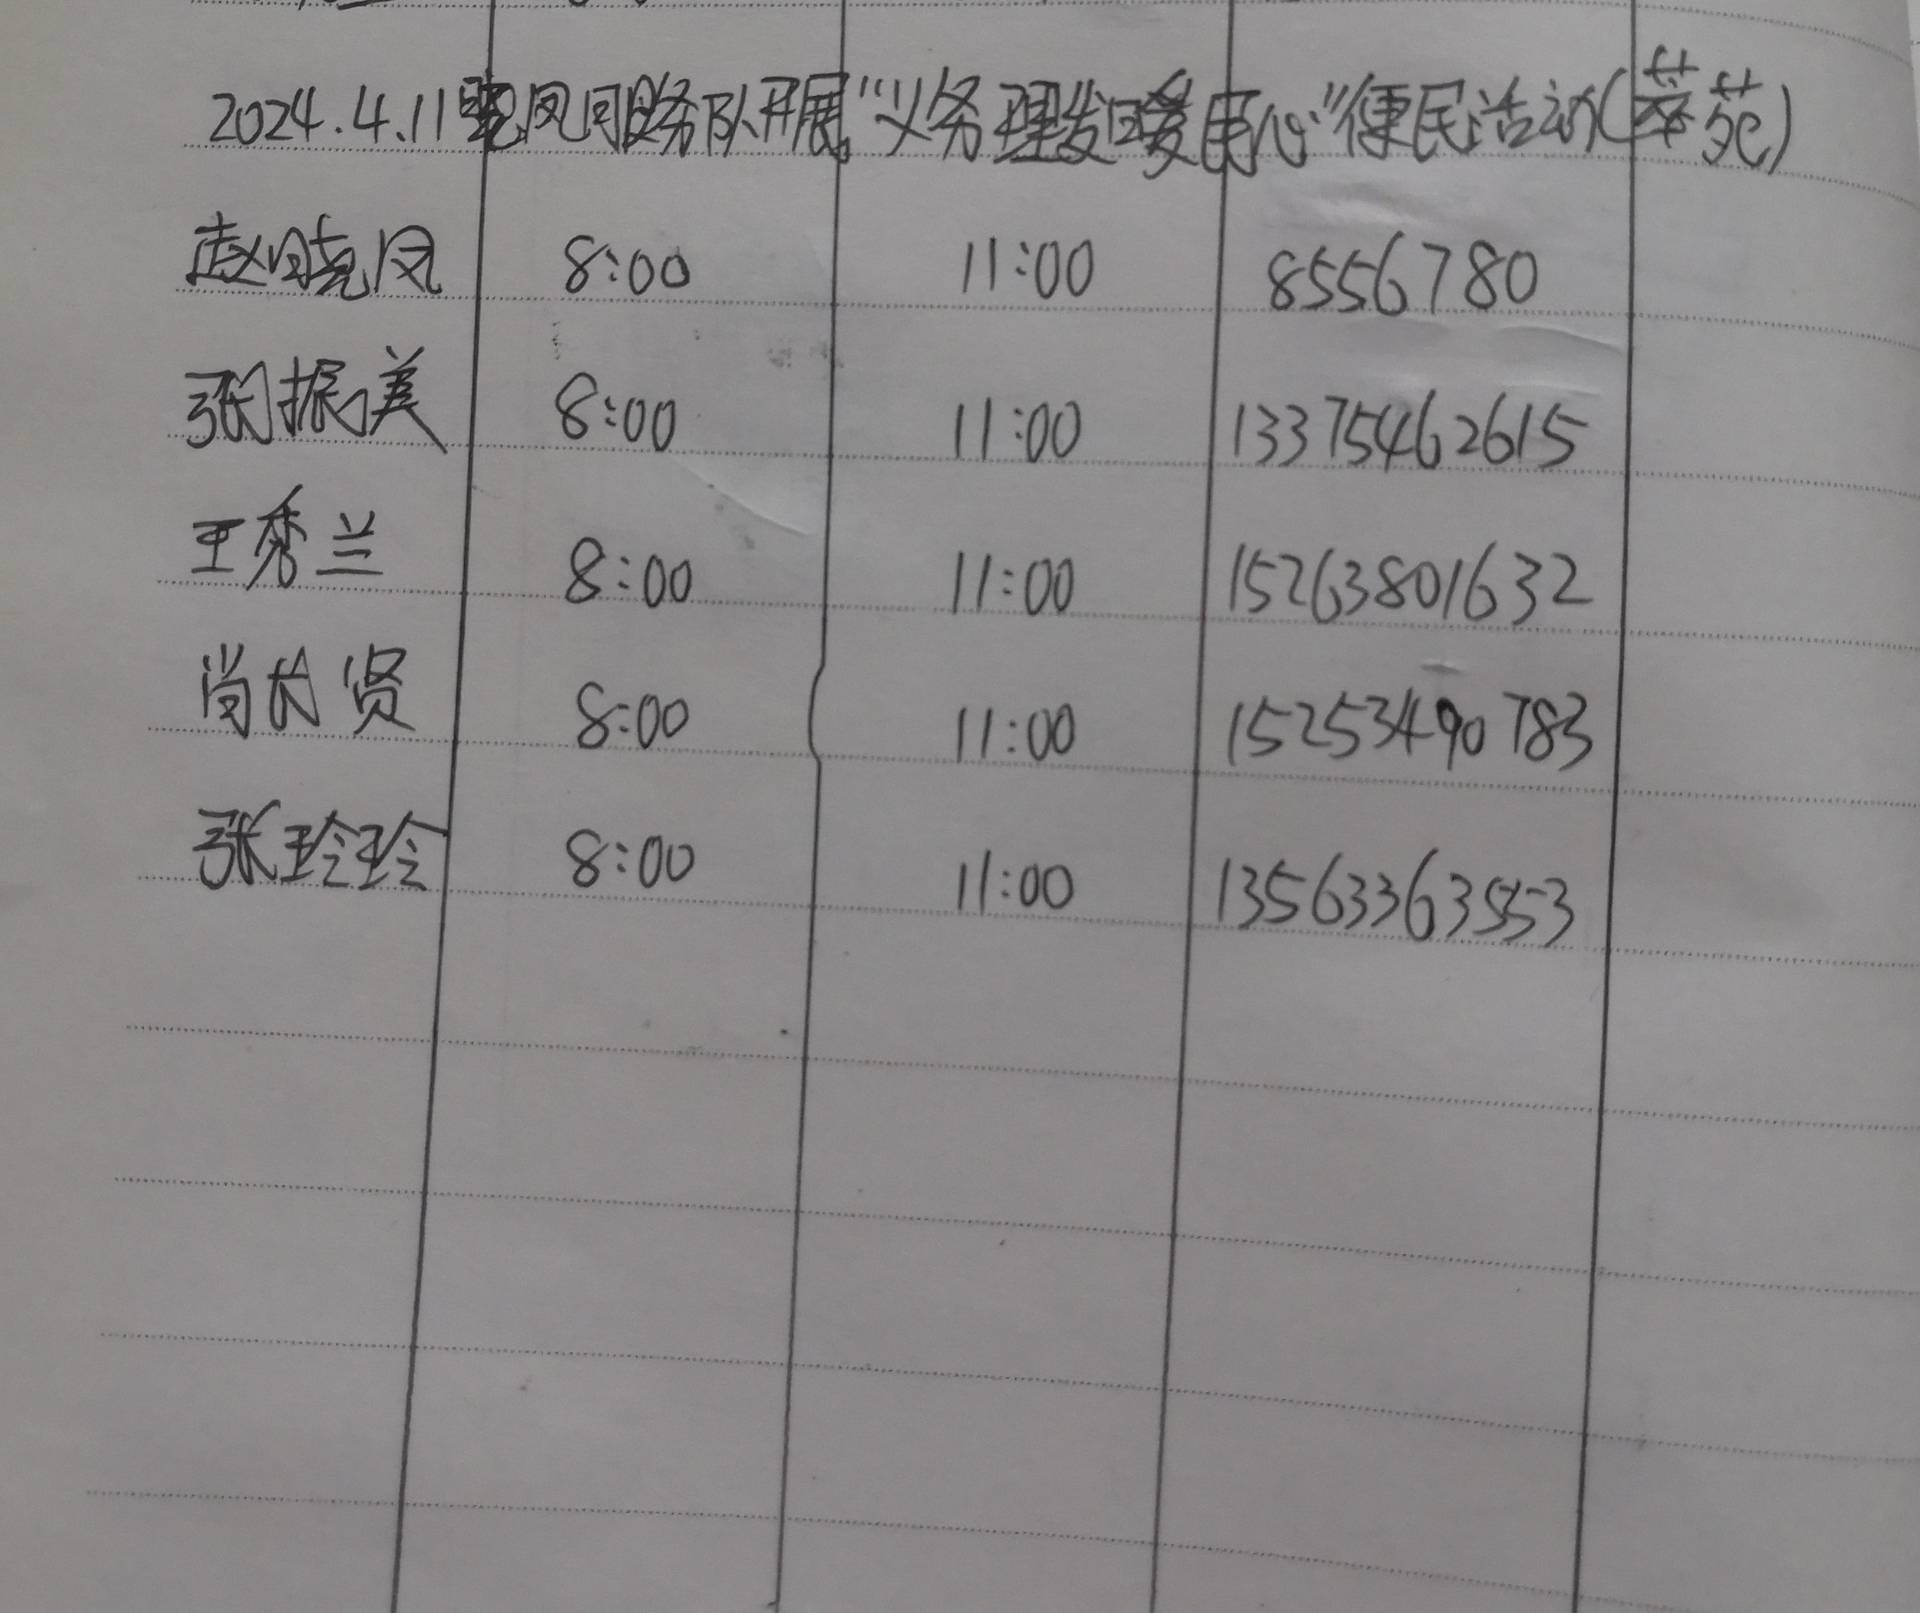 2024.4.11晓凤服务队开展“义务理发暖民心”便民活动(萃苑)
赵晓凤 8:00 11:00 8556780
张振美 8:00 11:00 13375462615
王秀兰 8:00 11:00 15263801632
尚长贤 8:00 11:00 15253490783
张玲玲 8:00 11:00 13563363553